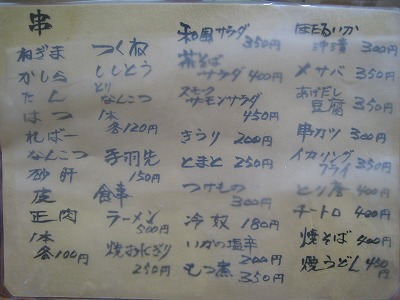 串
ねぎま
かしら
たん
はつ
ればー
なんこつ
砂肝
皮
正肉
1本
各100円
つくね
ししとう
とり
なんこつ
1本
各120円
手羽先
150円
食事
ラーメン
500円
焼おにぎり
250円
和風サラダ
350円
茶そば
サラダ 400円
スモーク
サーモンサラダ
450円
きうり 200円
とまと 250円
つけもの
300円
冷奴 180円
いかの塩辛
200円
もつ煮 350円
ほたるいか
沖漬 300円
メサバ 350円
あげだし
豆腐 350円
串カツ 300円
イカリング
フライ 350円
とり唐 400円
チートロ 400円
焼そば 400円
焼うどん 450円